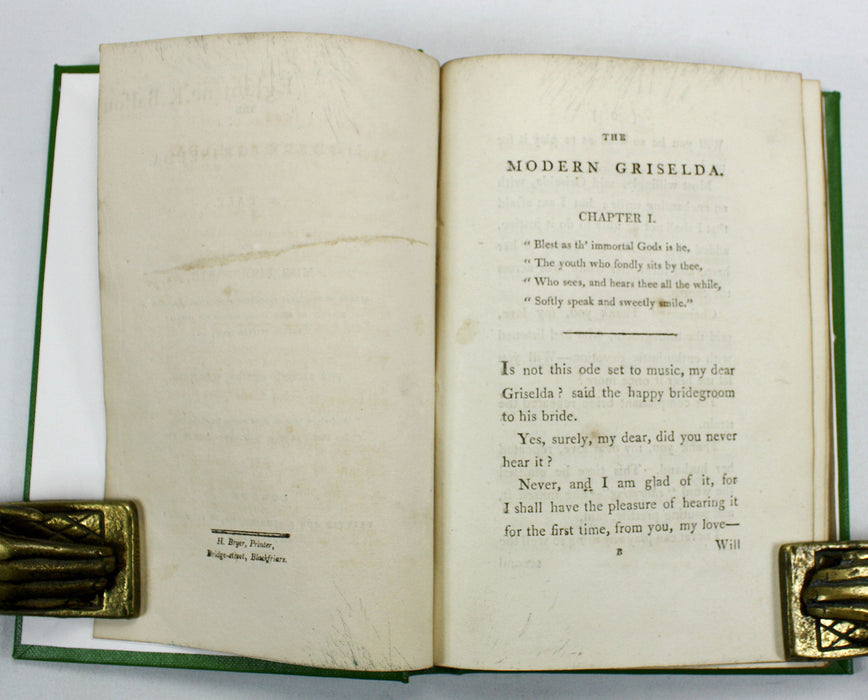 H. Bryer, Printer,
Bridge-street, Blackfriars.
THE
MODERN GRISELDA.
CHAPTER I.
“ Blest as th’ immortal Gods is he,
“ The youth who fondly sits by thee,
“ Who sees, and hears thee all the while,
“ Softly speak and sweetly smile.”
Is not this ode set to music, my dear
Griselda? said the happy bridegroom
to his bride.
Yes, surely, my dear, did you never
hear it?
Never, and I am glad of it, for
I shall have the pleasure of hearing it
for the first time, from you, my love—
B
Will